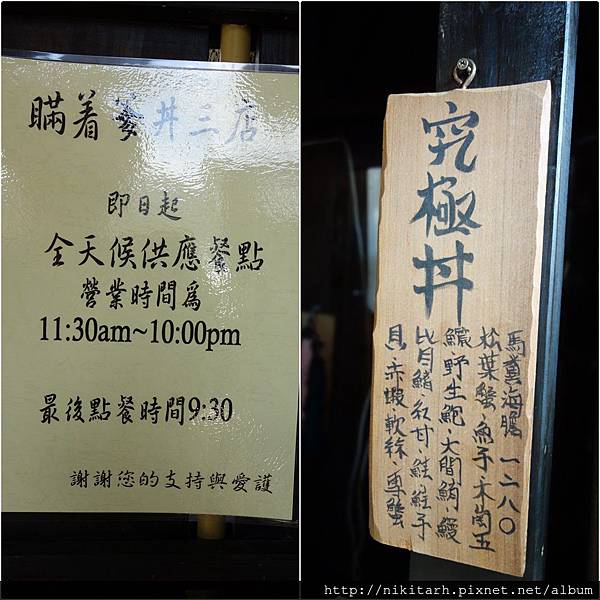 瞞着爹丼三店
即日起
全天候供應餐點
營業時間為
11:30am~10:00pm
最後點餐時間9:30
謝謝您的支持與愛護
究極丼
馬糞海膽 一二八〇
松葉蟹·魚子·木崗玉
鱲·野生鮑·大間鮪·鰻
比目鰭·紅甘·鮭·鮭子
貝·赤蝦·軟絲·專蟹
http://nikitarh.pixnet.net/album